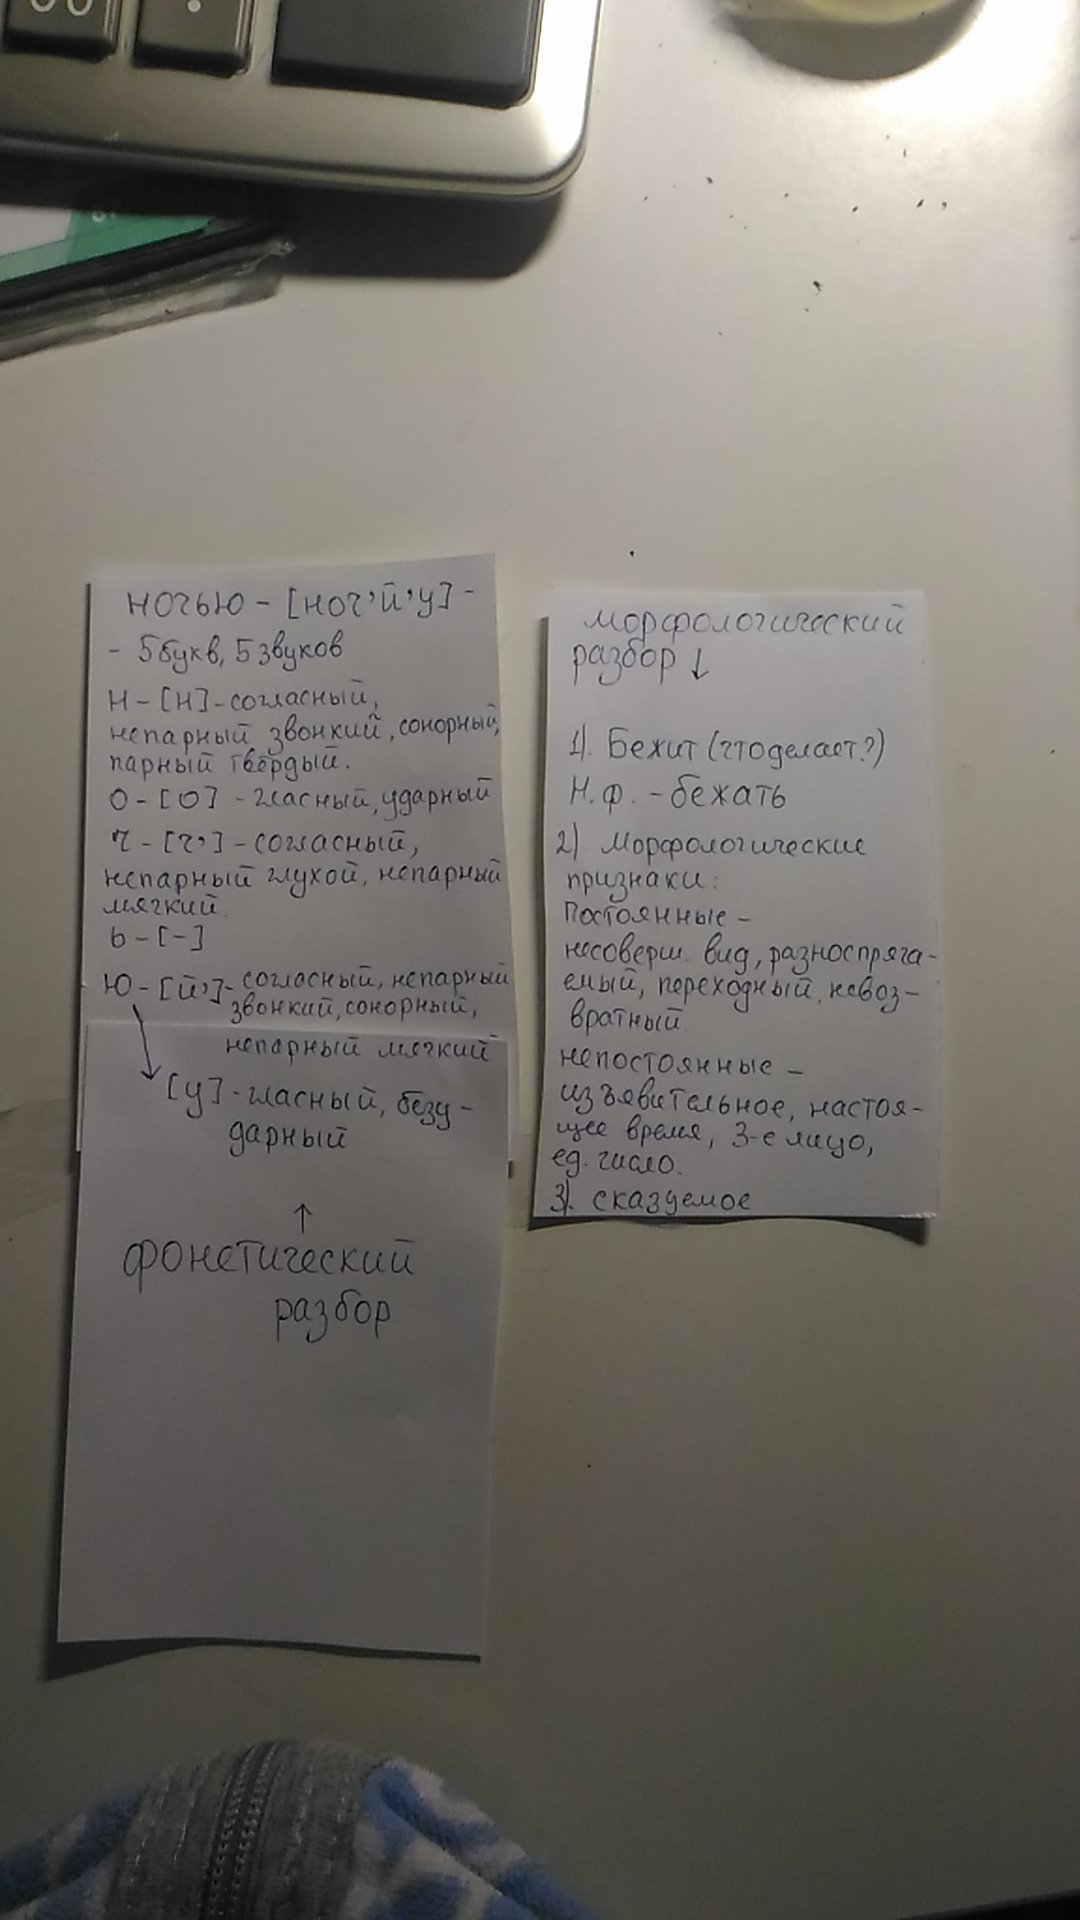 ночью - [ноч'й'у] -
- 5 букв, 5 звуков
Н - [н] - согласный,
непарный звонкий, сонорный,
парный твёрдый.
О - [о] - гласный, ударный
ч - [ч'] - согласный,
непарный глухой, непарный
мягкий.
ь - [-]
Ю - [й'] - согласный, непарный
звонкий, сонорный,
непарный мягкий
[у] - гласный, безу-
дарный
↑
фонетический
разбор
морфологический
разбор ↓
1). Бежит (что делает?)
Н.ф. - бежать
2). Морфологические
признаки:
Постоянные -
несоверш. вид, разноспряга-
емый, переходный, невоз-
вратный
непостоянные -
изъявительное, настоя-
щее время, 3-е лицо,
ед. число.
3). сказуемое